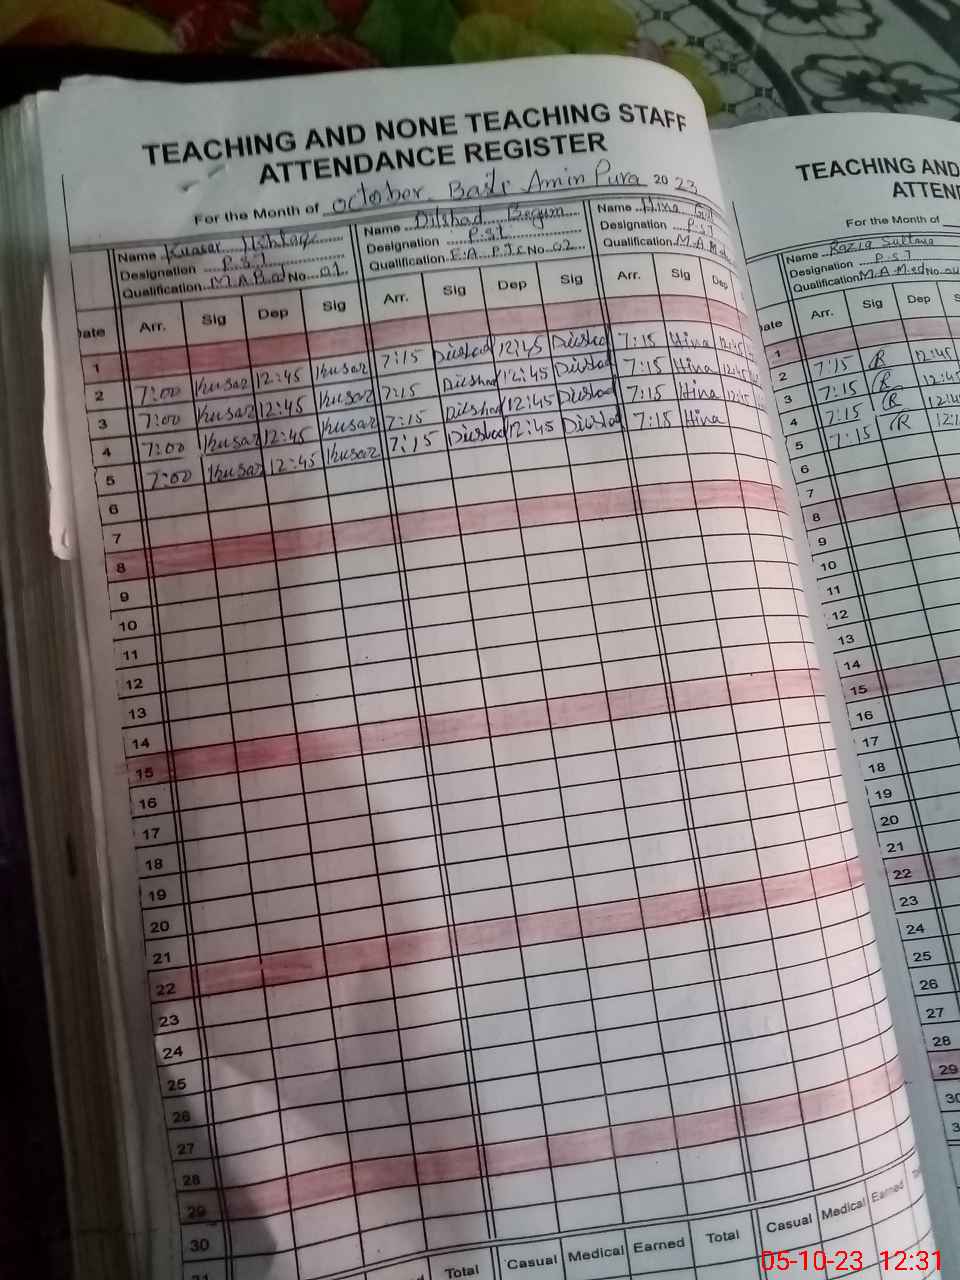 TEACHING AND NONE TEACHING STAFF
ATTENDANCE REGISTER
For the Month of October Basti Amin Pura 2023
Name Kusar Mushtaq Name Dilshad Begum Name Hina
Designation P.S.T Designation P.S.T Designation P.S.T
Qualification M.A.B.ed No 01 Qualification F.A. P.T.C No 02 Qualification M.A.M.ed
Date Arr. Sig Dep Sig Arr. Sig Dep Sig Arr. Sig Dep
1
2 7:00 Kusar 12:45 Kusar 7:15 Dilshad 12:45 Dilshad 7:15 Hina 12:45
3 7:00 Kusar 12:45 Kusar 7:15 Dilshad 12:45 Dilshad 7:15 Hina 12:45
4 7:00 Kusar 12:45 Kusar 7:15 Dilshad 12:45 Dilshad 7:15 Hina 12:45
5 7:00 Kusar 12:45 Kusar 7:15 Dilshad 12:45 Dilshad 7:15 Hina
6
7
8
9
10
11
12
13
14
15
16
17
18
19
20
21
22
23
24
25
26
27
28
29
30
31
Total Casual Medical Earned Total Casual Medical Earned
TEACHING AND
For the Month of
Name Razia Sultana
Designation P.S.T
Qualification M.A.M.ed No 04
Date Arr. Sig Dep
1
2 7:15 R 12:45
3 7:15 R 12:45
4 7:15 R
5 7:15 R
6
7
8
9
10
11
12
13
14
15
16
17
18
19
20
21
22
23
24
25
26
27
28
29
30
05-10-23 12:31